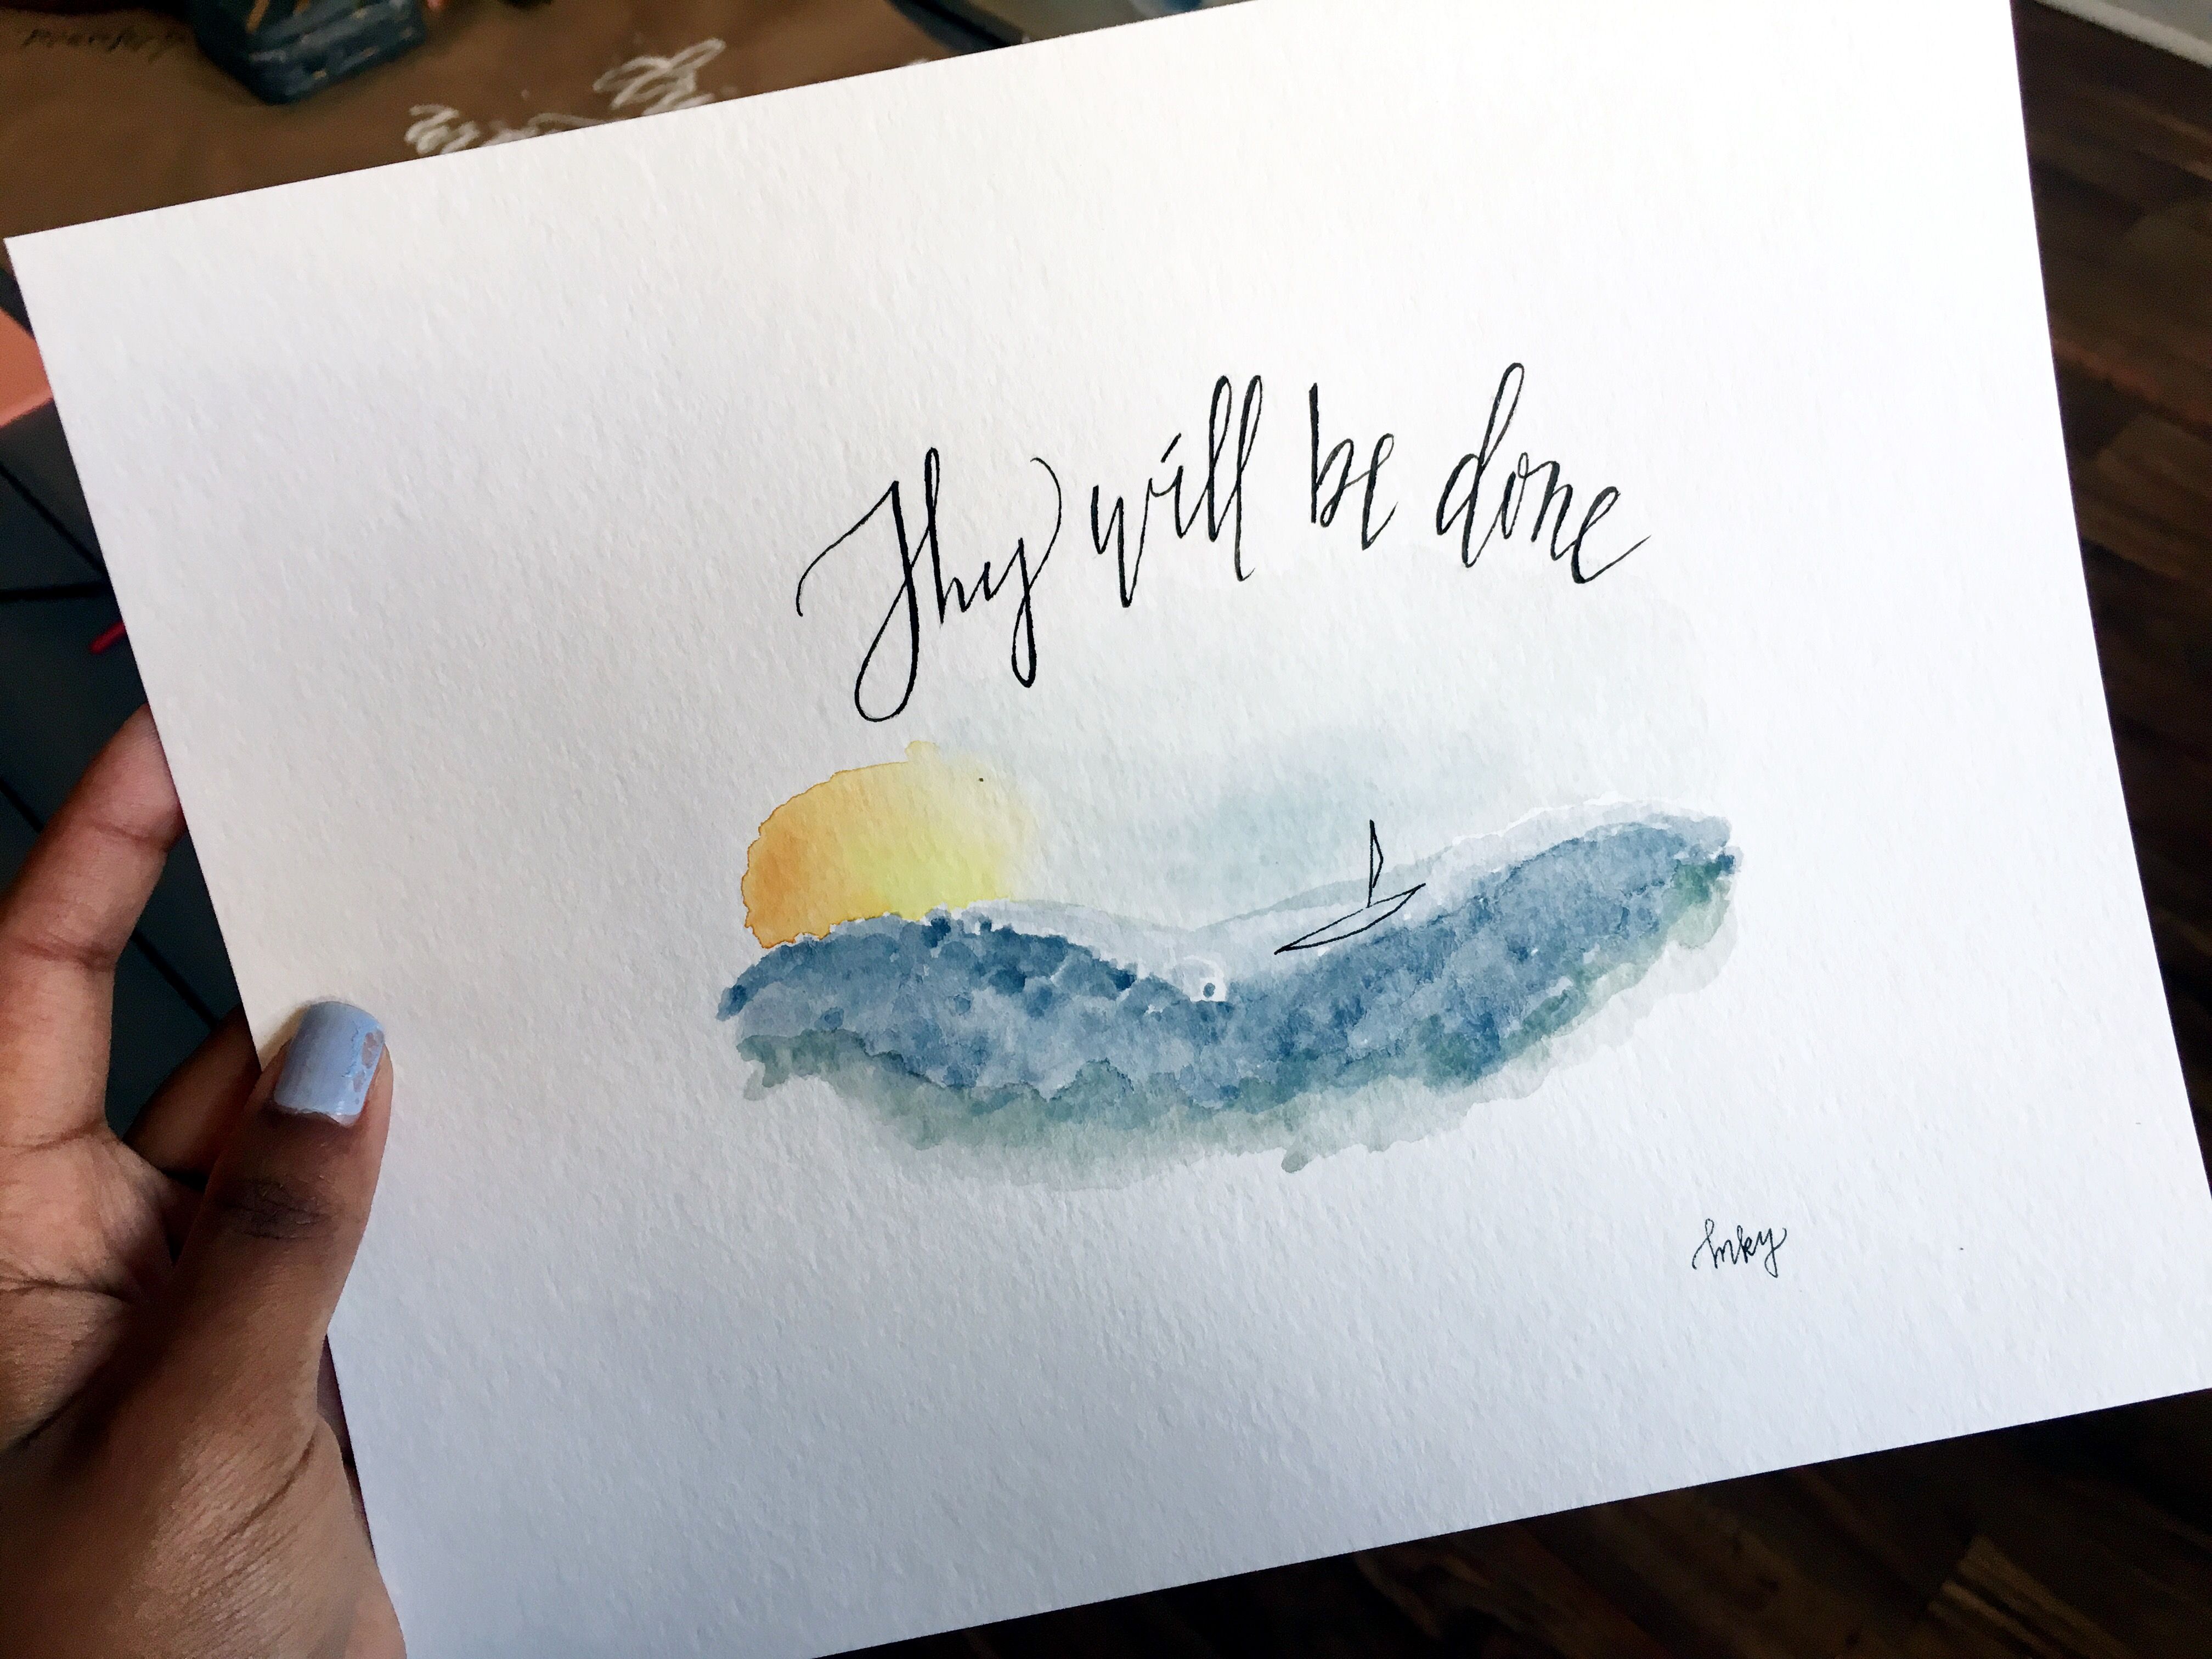 Thy will be done
Inky